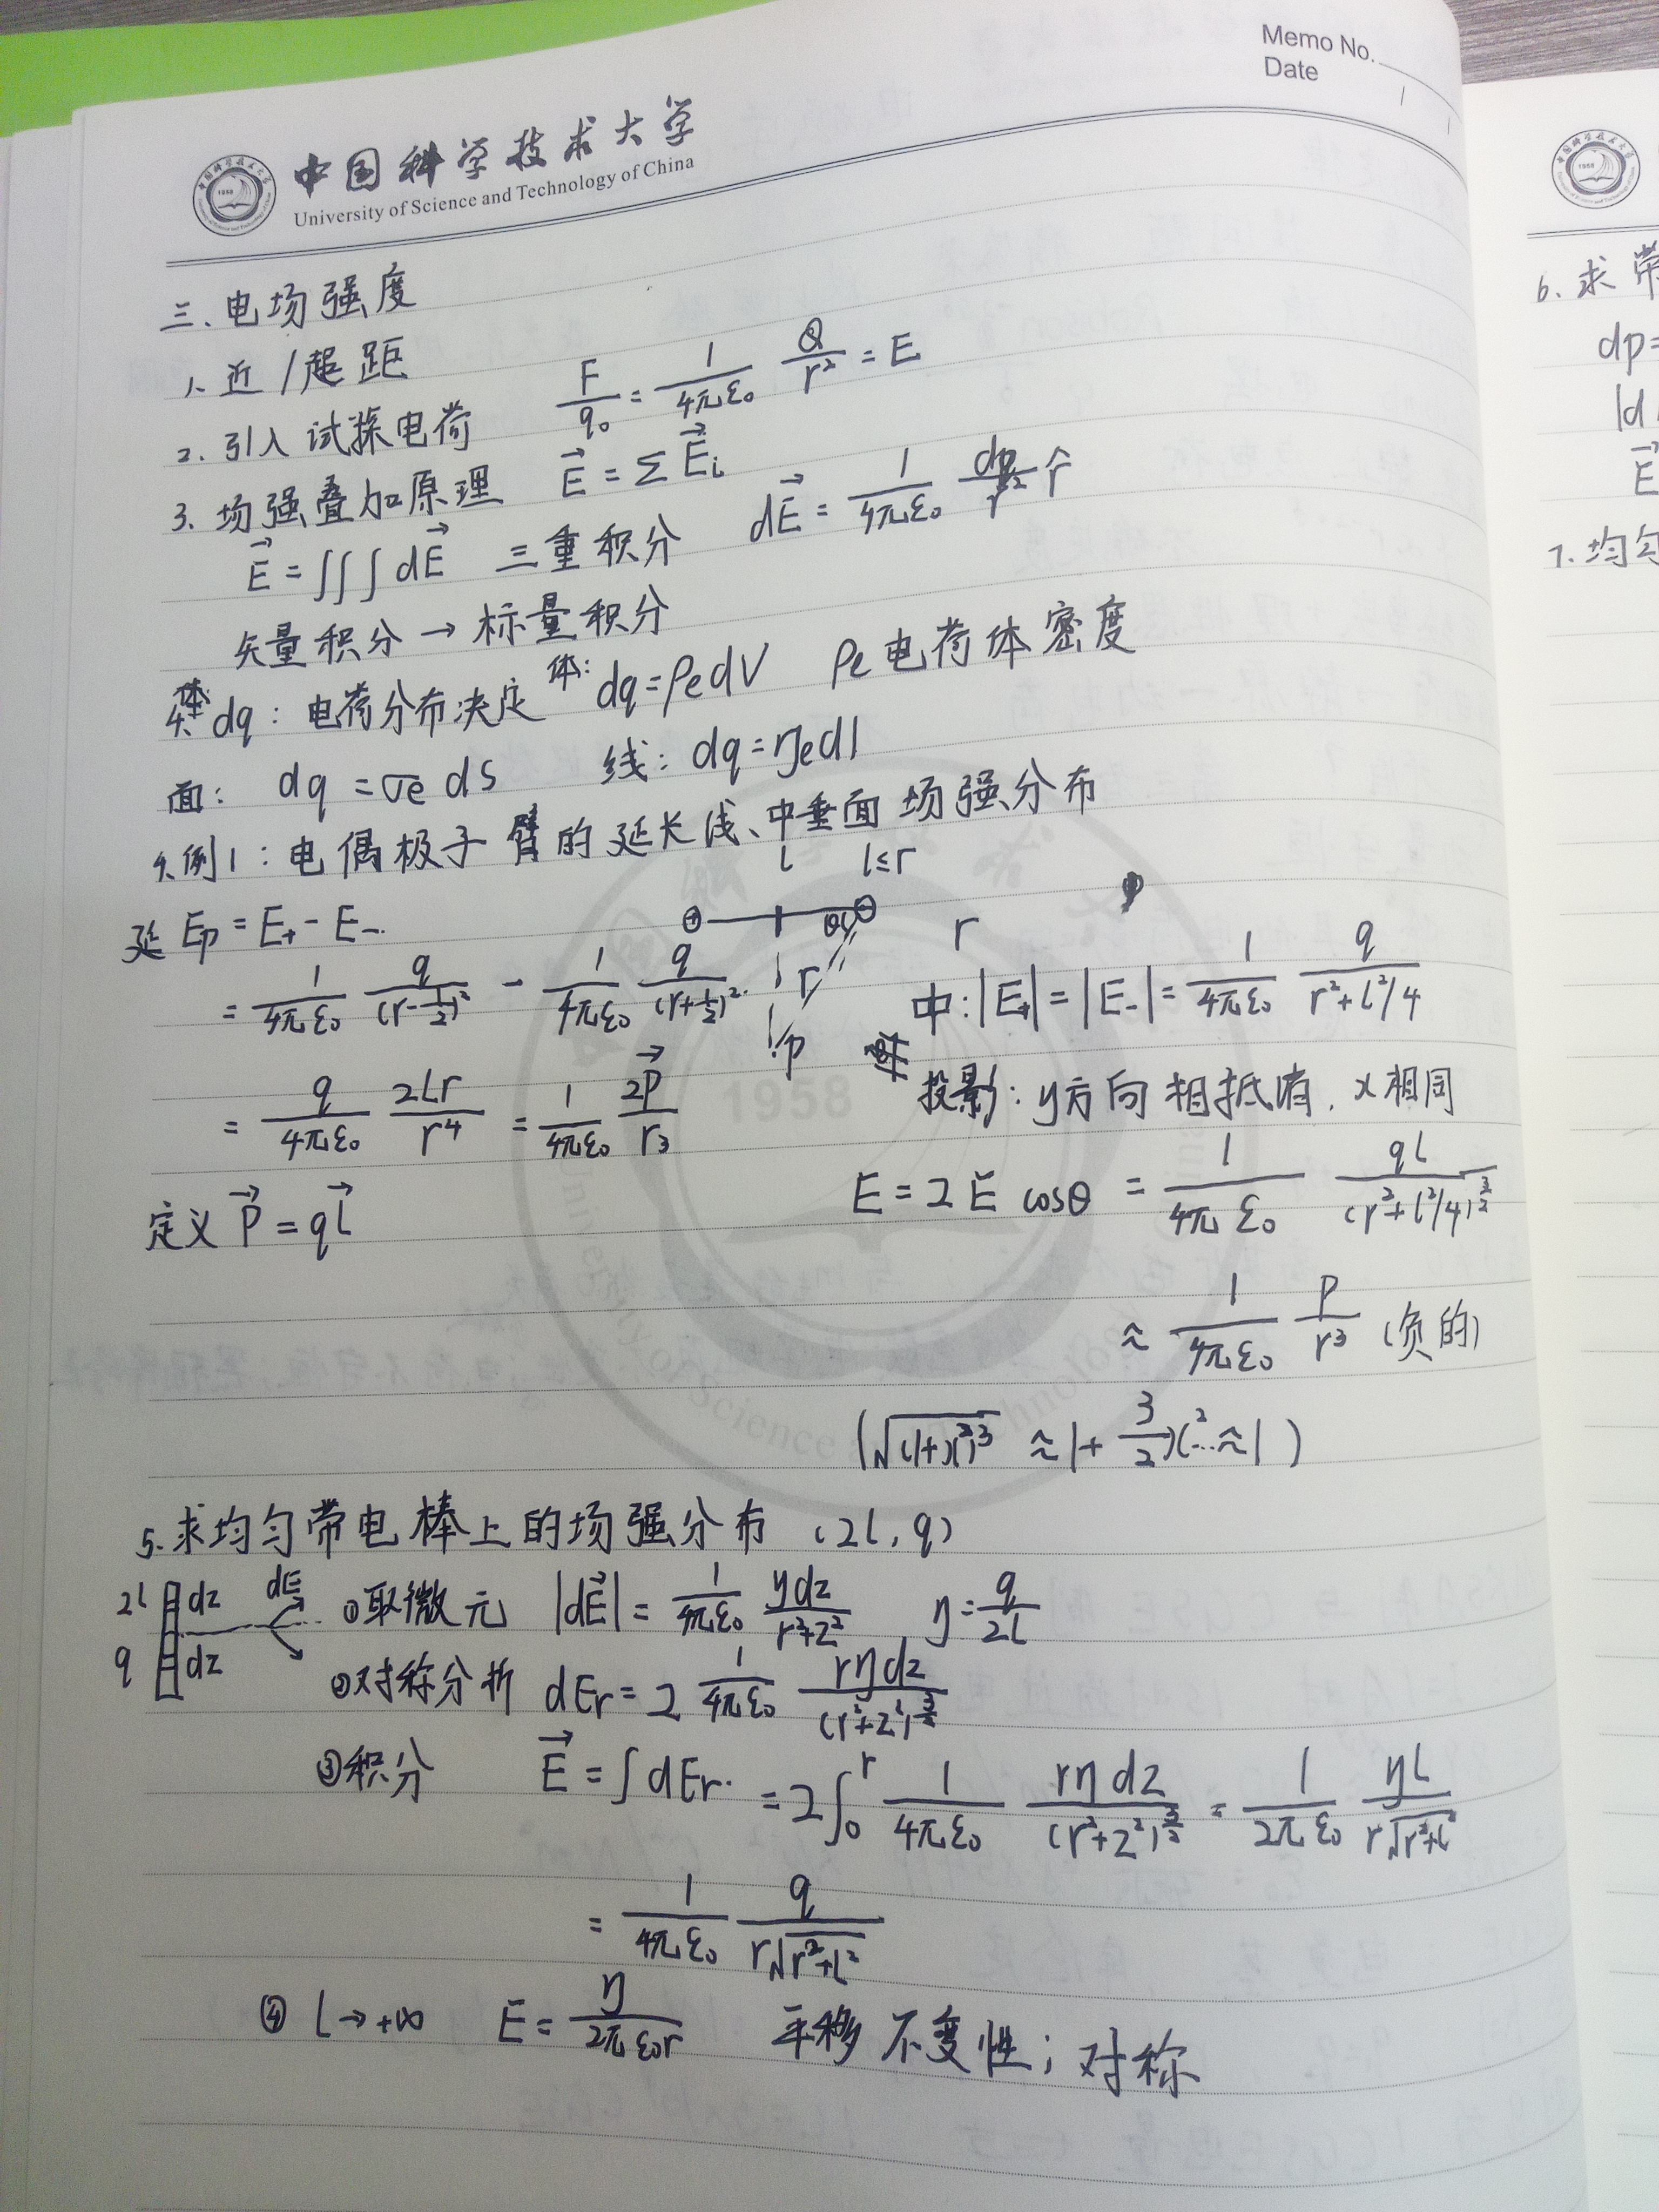 Memo No.
Date
中国科学技术大学
University of Science and Technology of China
三、电场强度
1. 近/超距
2. 引入试探电荷 F/q₀ = 1/4πε₀ Q/r² = E
3. 场强叠加原理 E⃗ = Σ E⃗i
E⃗ = ∭ dE⃗ 三重积分 dE⃗ = 1/4πε₀ dq/r² r̂
矢量积分 → 标量积分
4. dq: 电荷分布决定 体: dq = ρe dV ρe 电荷体密度
面: dq = σe ds 线: dq = ηe dl
例1: 电偶极子臂的延长线、中垂面场强分布
l l≤r
延 Ep = E+ - E-
= 1/4πε₀ q/(r-l/2)² - 1/4πε₀ q/(r+l/2)²
= q/4πε₀ 2lr/r⁴ = 1/4πε₀ 2P⃗/r³
定义 P⃗ = ql⃗
r
θ
r
p
中: |E+| = |E-| = 1/4πε₀ q/r²+l²/4
投影: y方向相抵消, x相同
E = 2E cosθ = 1/4πε₀ ql/(r²+l²/4)^3/2
≈ 1/4πε₀ P/r³ (负的)
(√(1+x²)³ ≈ 1+3/2 x²...≈1)
5. 求均匀带电棒上的场强分布 (2l, q)
2l dz dE ①取微元 |dE⃗| = 1/4πε₀ ηdz/r²+z² η = q/2l
q dz
②对称分析 dEr = 2 1/4πε₀ rηdz/(r²+z²)^3/2
③积分 E⃗ = ∫dEr = 2∫₀^r 1/4πε₀ rηdz/(r²+z²)^3/2 = 1/2πε₀ ηl/r√r²+l²
= 1/4πε₀ q/r√r²+l²
④ l→+∞ E = η/2πε₀r 平移不变性; 对称
6. 求带
dp=
|d
E⃗
7. 均匀